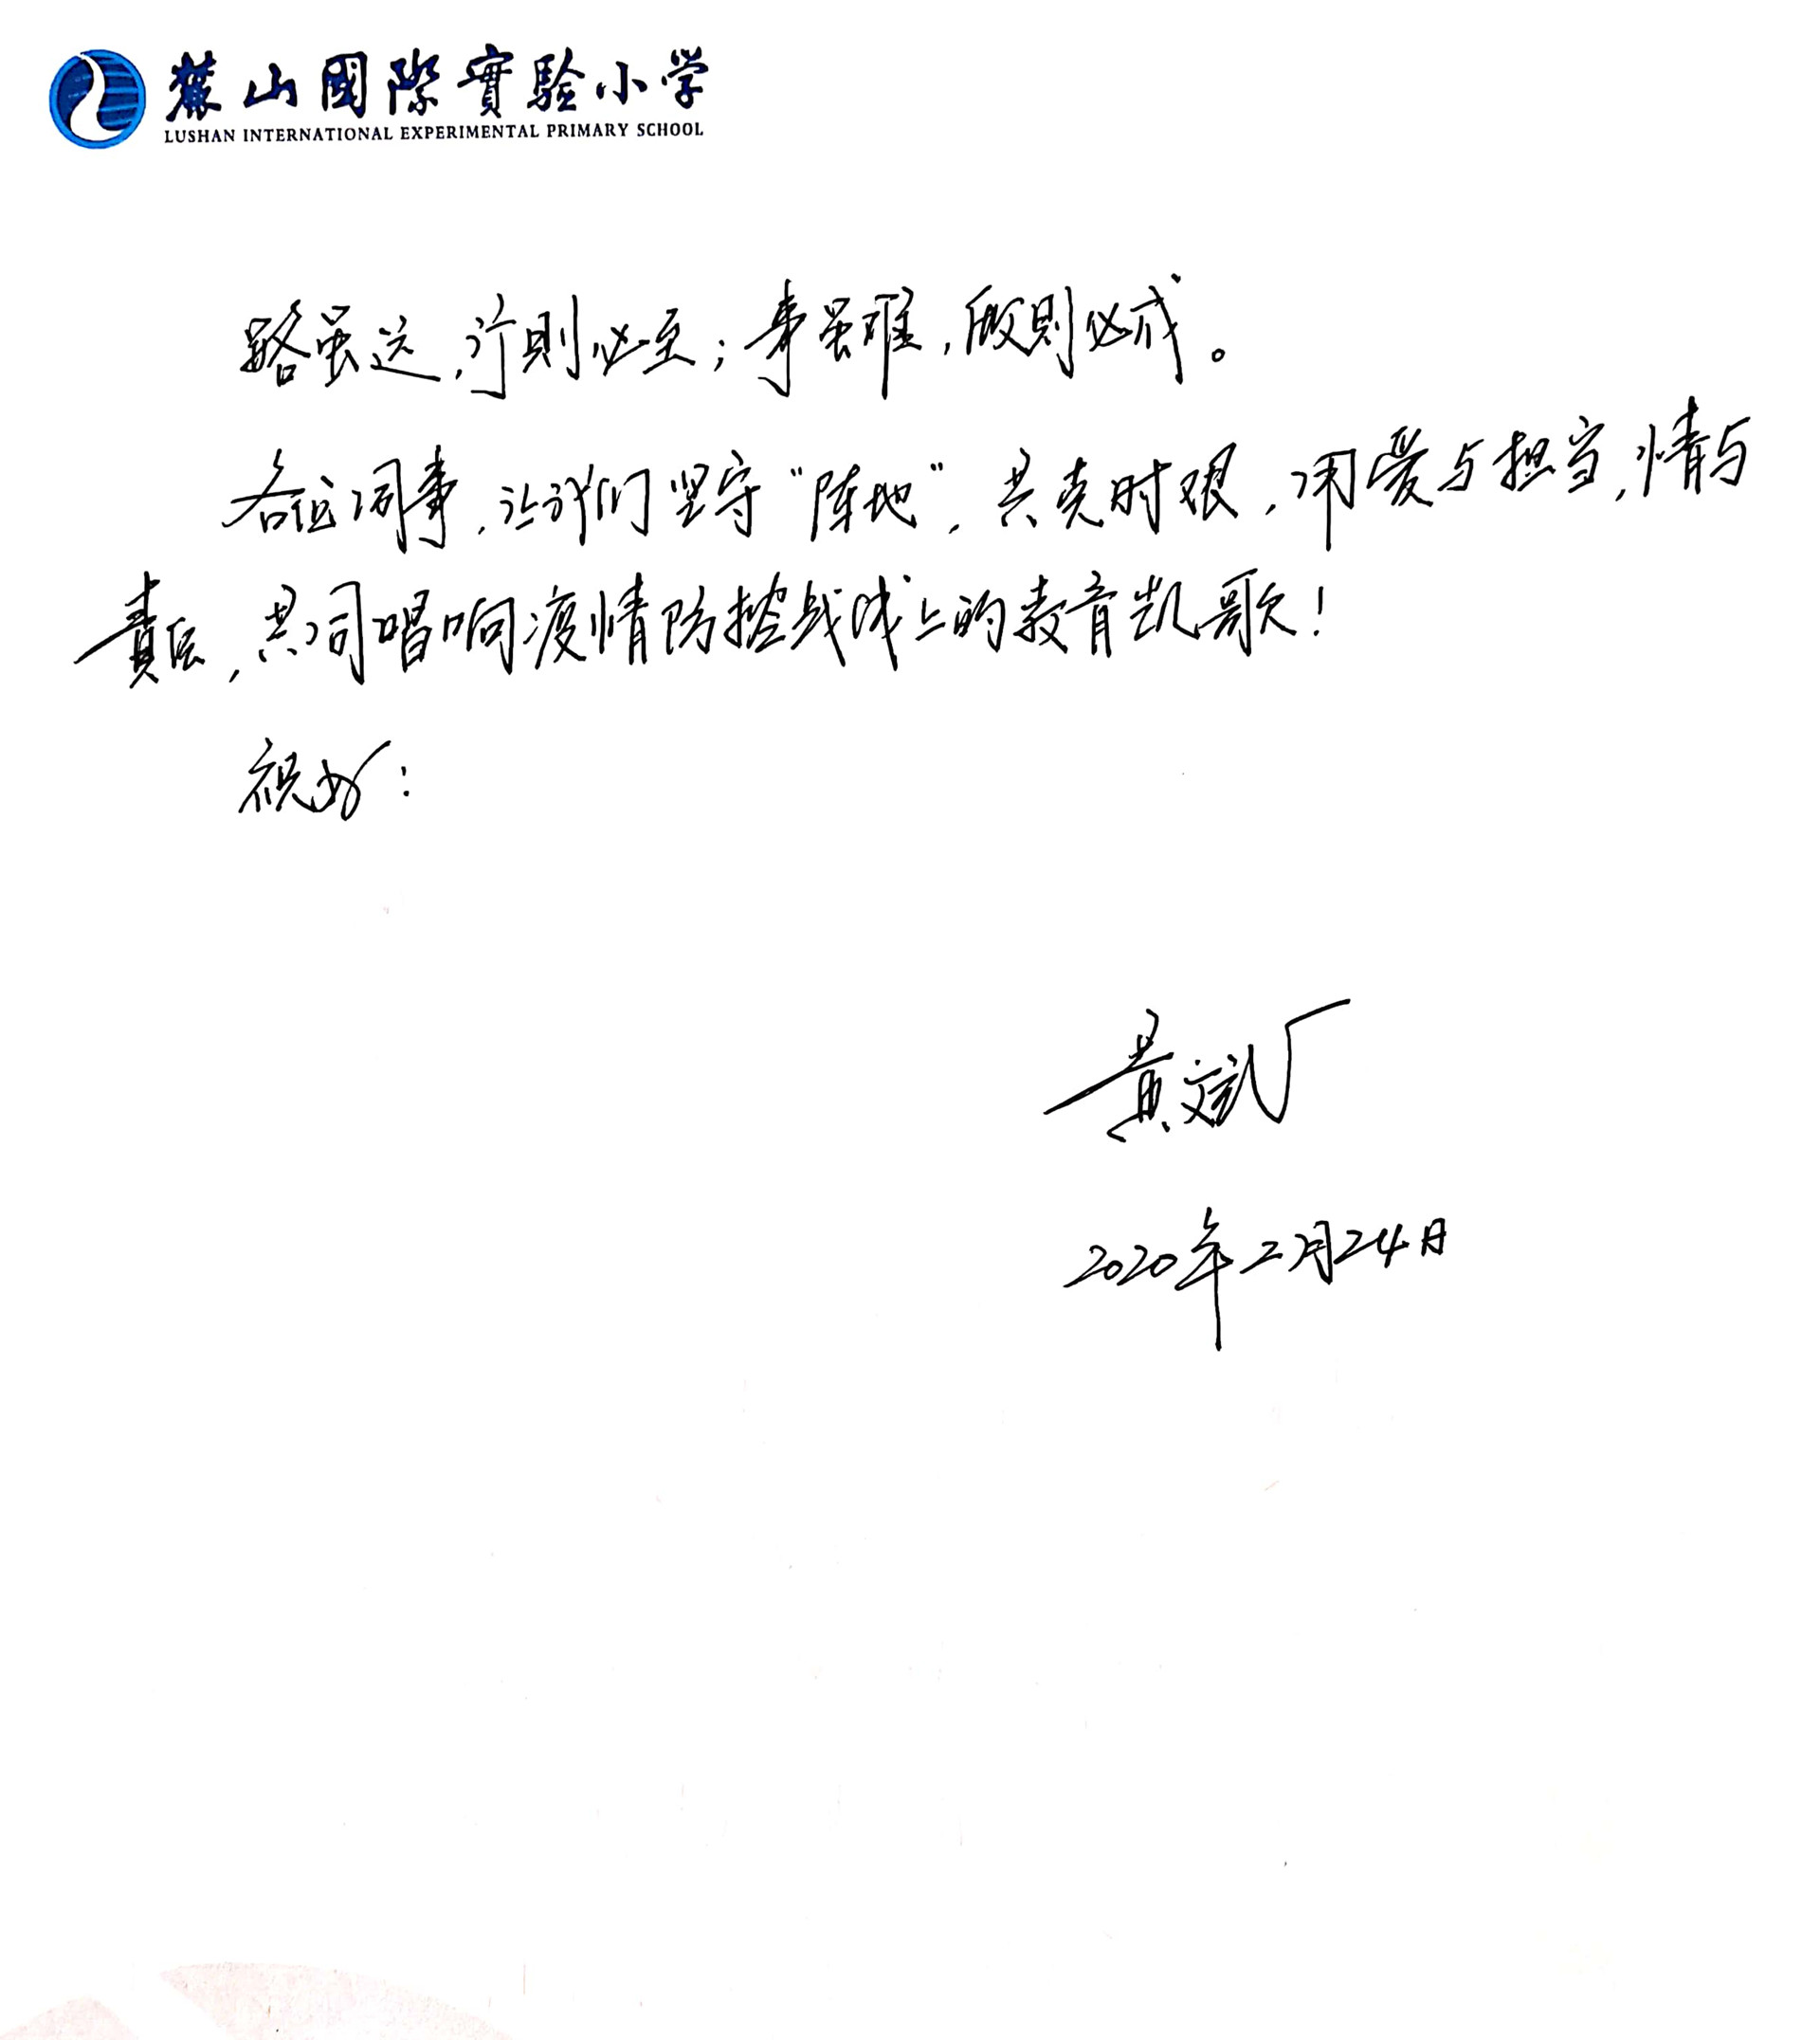 麓山國際實验小学
LUSHAN INTERNATIONAL EXPERIMENTAL PRIMARY SCHOOL
路虽远，行则必至；事虽难，做则必成。
各位同事，让我们坚守“阵地”，共克时艰，用爱与担当，情与
责任，共同唱响疫情防控战线上的教育凯歌！
祝好：
黄斌
2020年二月24日